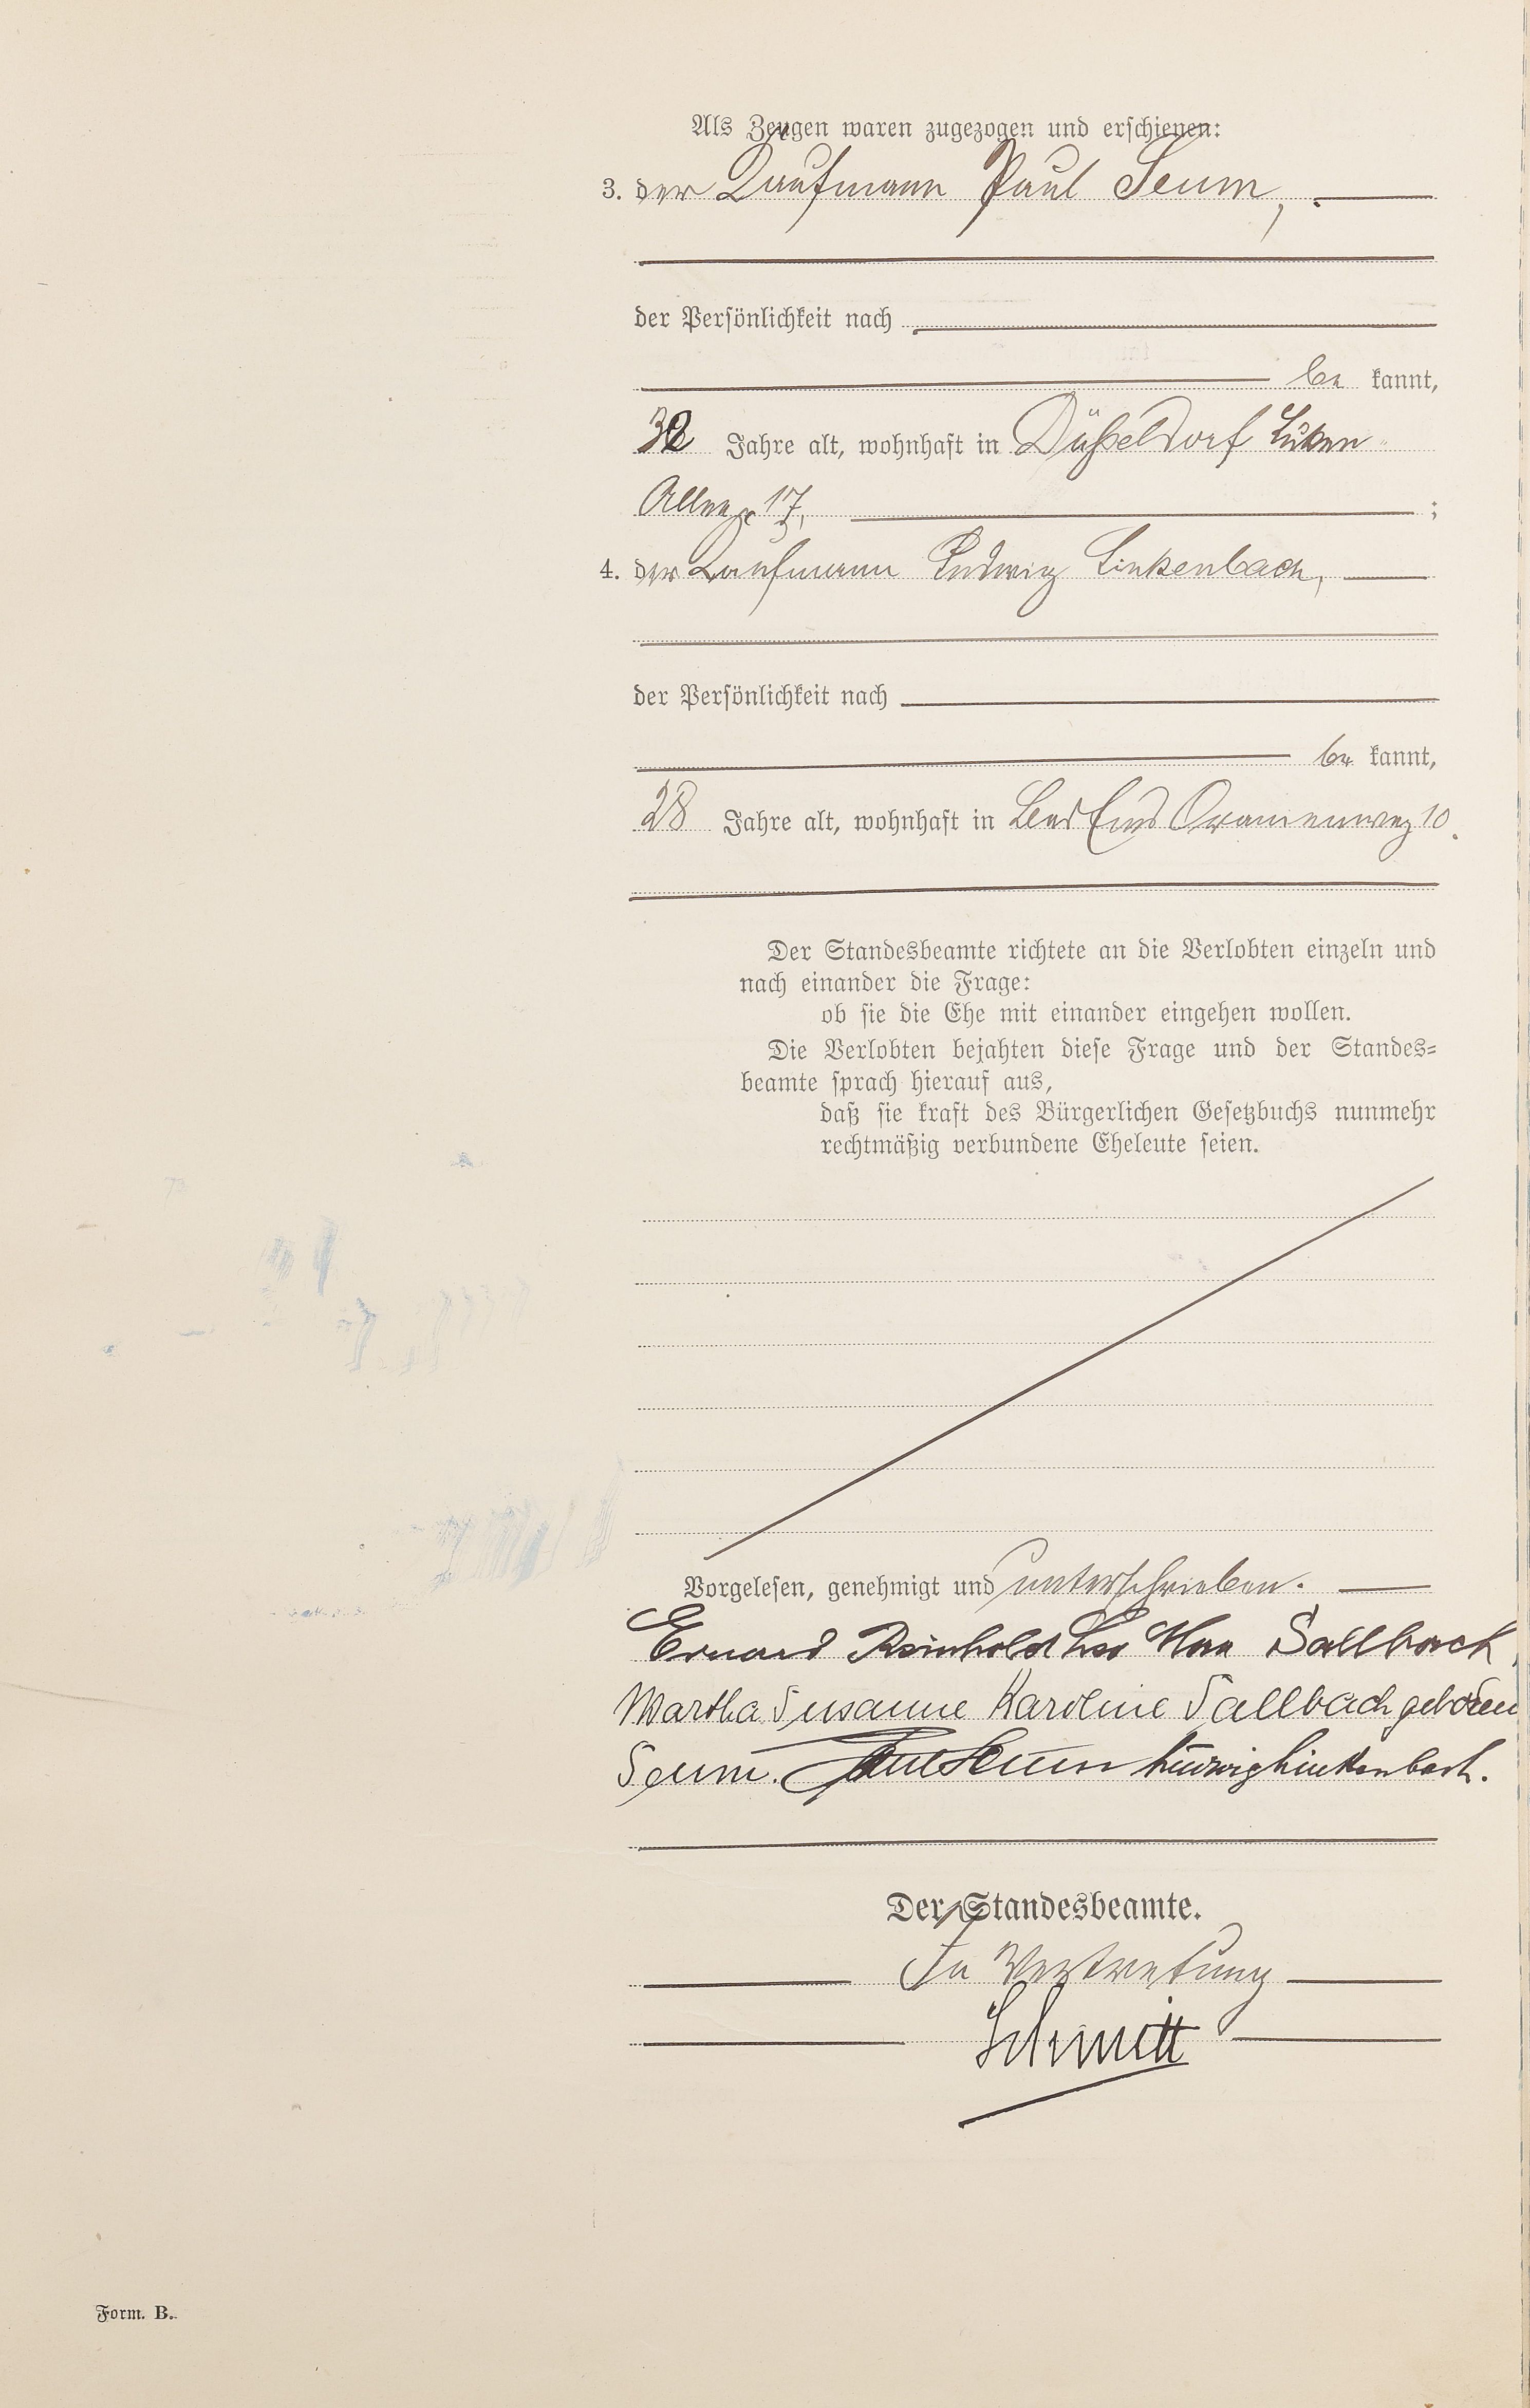 Als Zeugen waren zugezogen und erschienen:
3. der Kaufmann Paul Seum,
der Persönlichkeit nach
be kannt,
32 Jahre alt, wohnhaft in Düsseldorf
Allee 17,
;
4. der Kaufmann Ludwig Linkenbach,
der Persönlichkeit nach
be kannt,
28 Jahre alt, wohnhaft in Bad Ems Oranienweg 10.
Der Standesbeamte richtete an die Verlobten einzeln und
nach einander die Frage:
ob sie die Ehe mit einander eingehen wollen.
Die Verlobten bejahten diese Frage und der Standes-
beamte sprach hierauf aus,
daß sie kraft des Bürgerlichen Gesetzbuchs nunmehr
rechtmäßig verbundene Eheleute seien.
Vorgelesen, genehmigt und unterschrieben.
Reinhold Leo Sallbach
Martha Susanne Karoline Sallbach geboren
Seum. Paul Seum Ludwig Linkenbach.
Der Standesbeamte.
In Vertretung
Schmitt
Form. B.